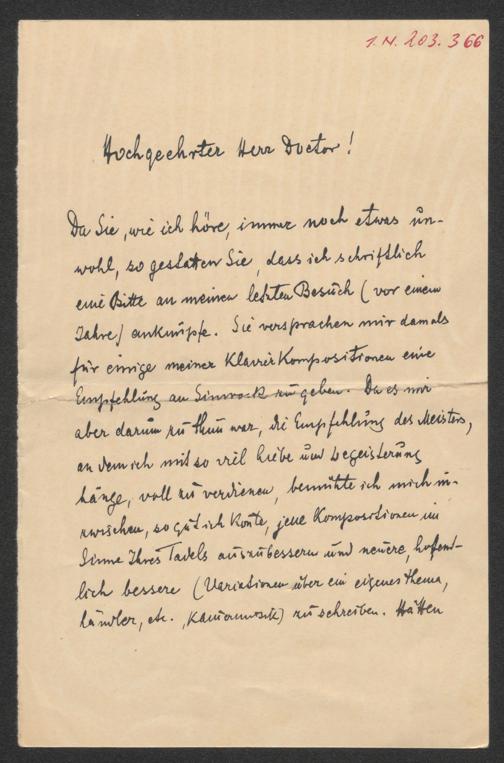 I.N. 203.366
Hochgeehrter Herr Doctor!
Da Sie, wie ich höre, immer noch etwas un-
wohl, so gestatten Sie, dass ich schriftlich
eine Bitte an meinen letzten Besuch (vor einem
Jahre) anknüpfe. Sie versprachen mir damals
für einige meiner Klavierkompositionen eine
Empfehlung an Simrock zu geben. Da es mir
aber darum zu thun war, die Empfehlung des Meisters,
an dem ich mit so viel Liebe und Begeisterung
hänge, voll zu verdienen, bemühte ich mich in-
zwischen, so gut ich konte, jene Kompositionen im
Sinne Ihres Tadels auszubessern und neuere, hofent-
lich bessere (Variationen über ein eigenes Thema,
Ländler, etc., Kammermusik) zu schreiben. Hätten